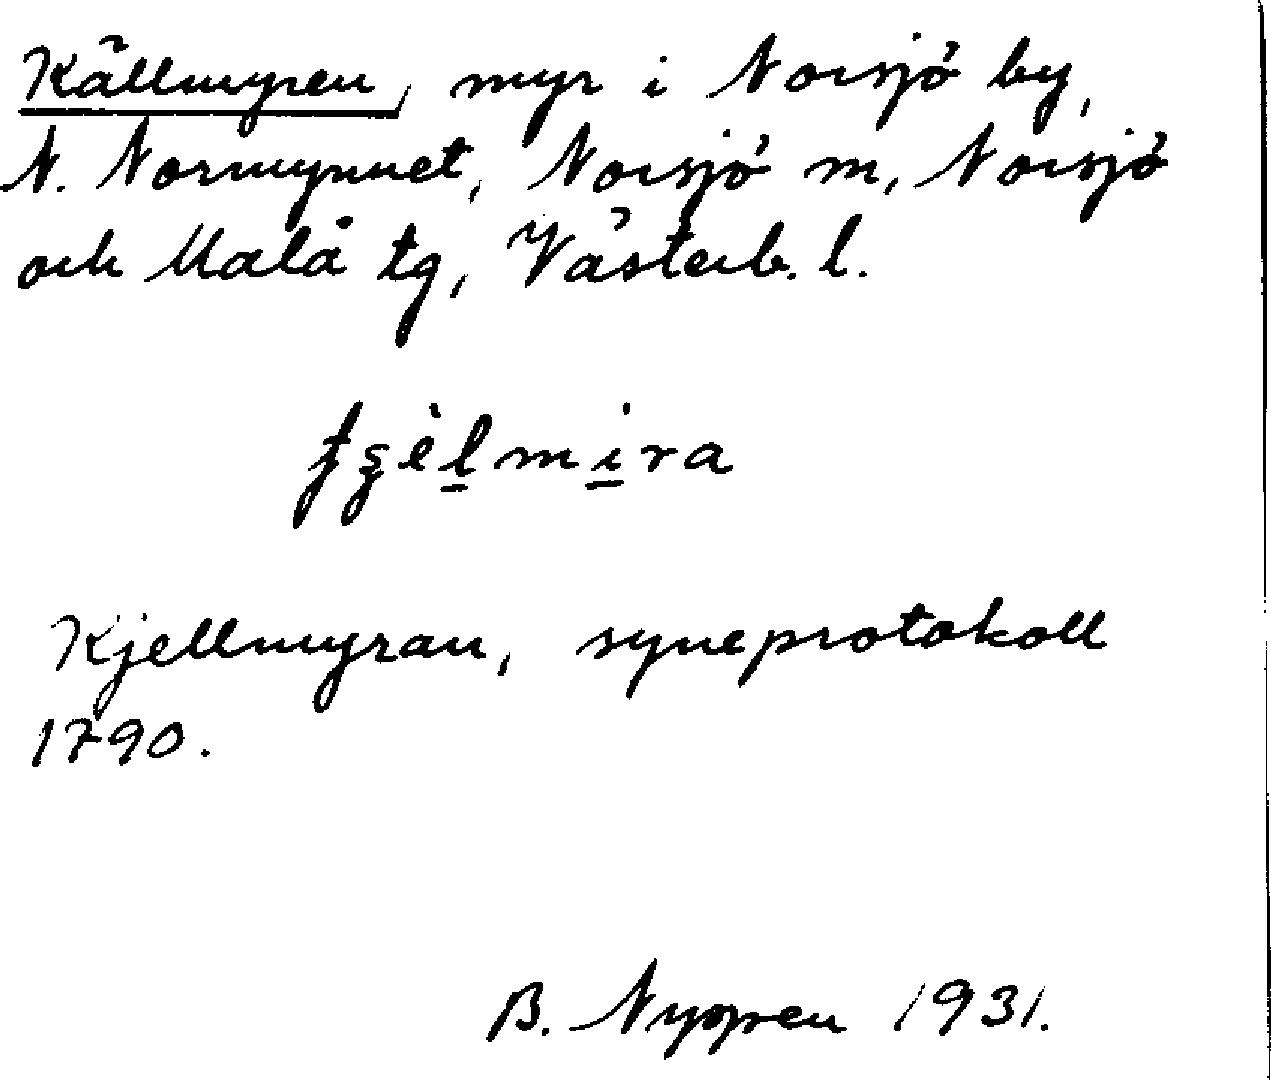 Källmyren, myr i Norsjö by,
N. Normynnet, Norsjö m, Norsjö
och Malå tg, Västerb. l.
Kjellmyran, syneprotokoll
1790.
B. Nygren 1931.